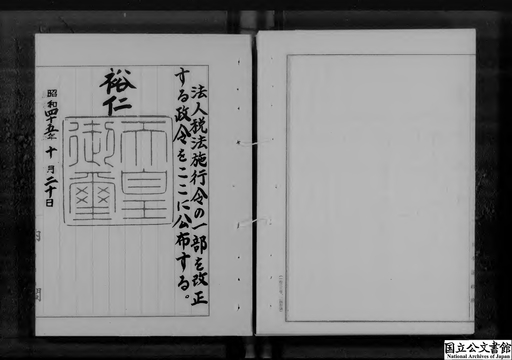 法人税法施行令の一部を改正
する政令をここに公布する。
裕仁
天皇
御璽
昭和四十五年十月二十日
国立公文書館
National Archives of Japan